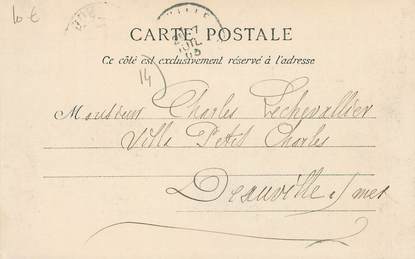 10 €
VILLE
JUIL
03
CARTE POSTALE
Ce côté est exclusivement réservé à l'adresse
14
Monsieur Charles Lechevallier
Villa Petit Charles
Deauville s/mer